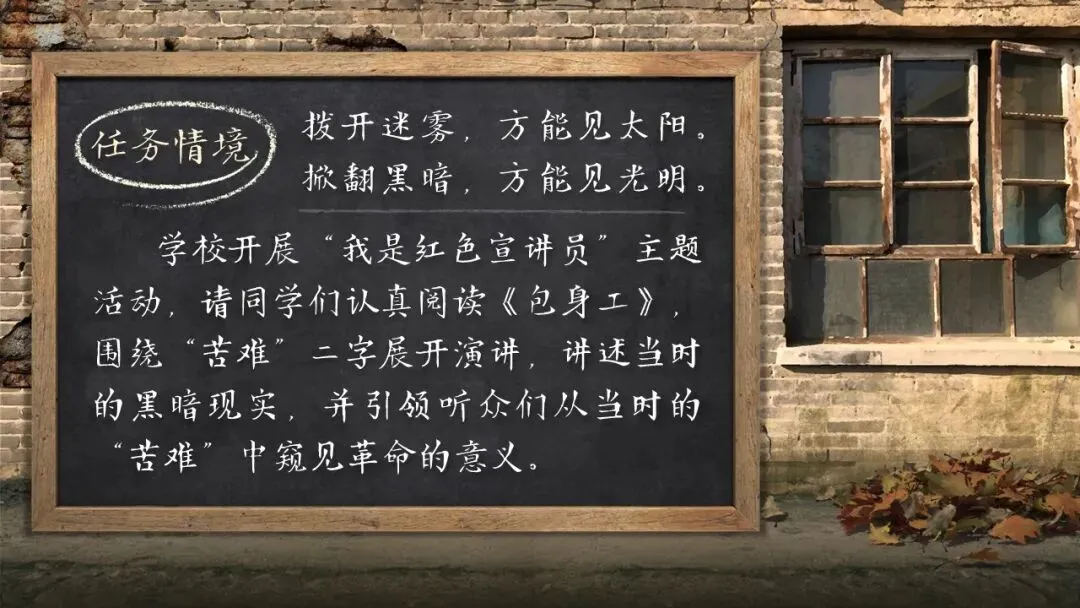 任务情境
拨开迷雾，方能见太阳。
掀翻黑暗，方能见光明。
学校开展“我是红色宣讲员”主题
活动，请同学们认真阅读《包身工》，
围绕“苦难”二字展开演讲，讲述当时
的黑暗现实，并引领听众们从当时的
“苦难”中窥见革命的意义。